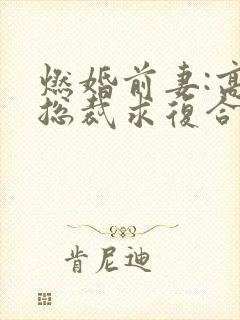 燃婚前妻:高
总裁求復合
肯尼迪